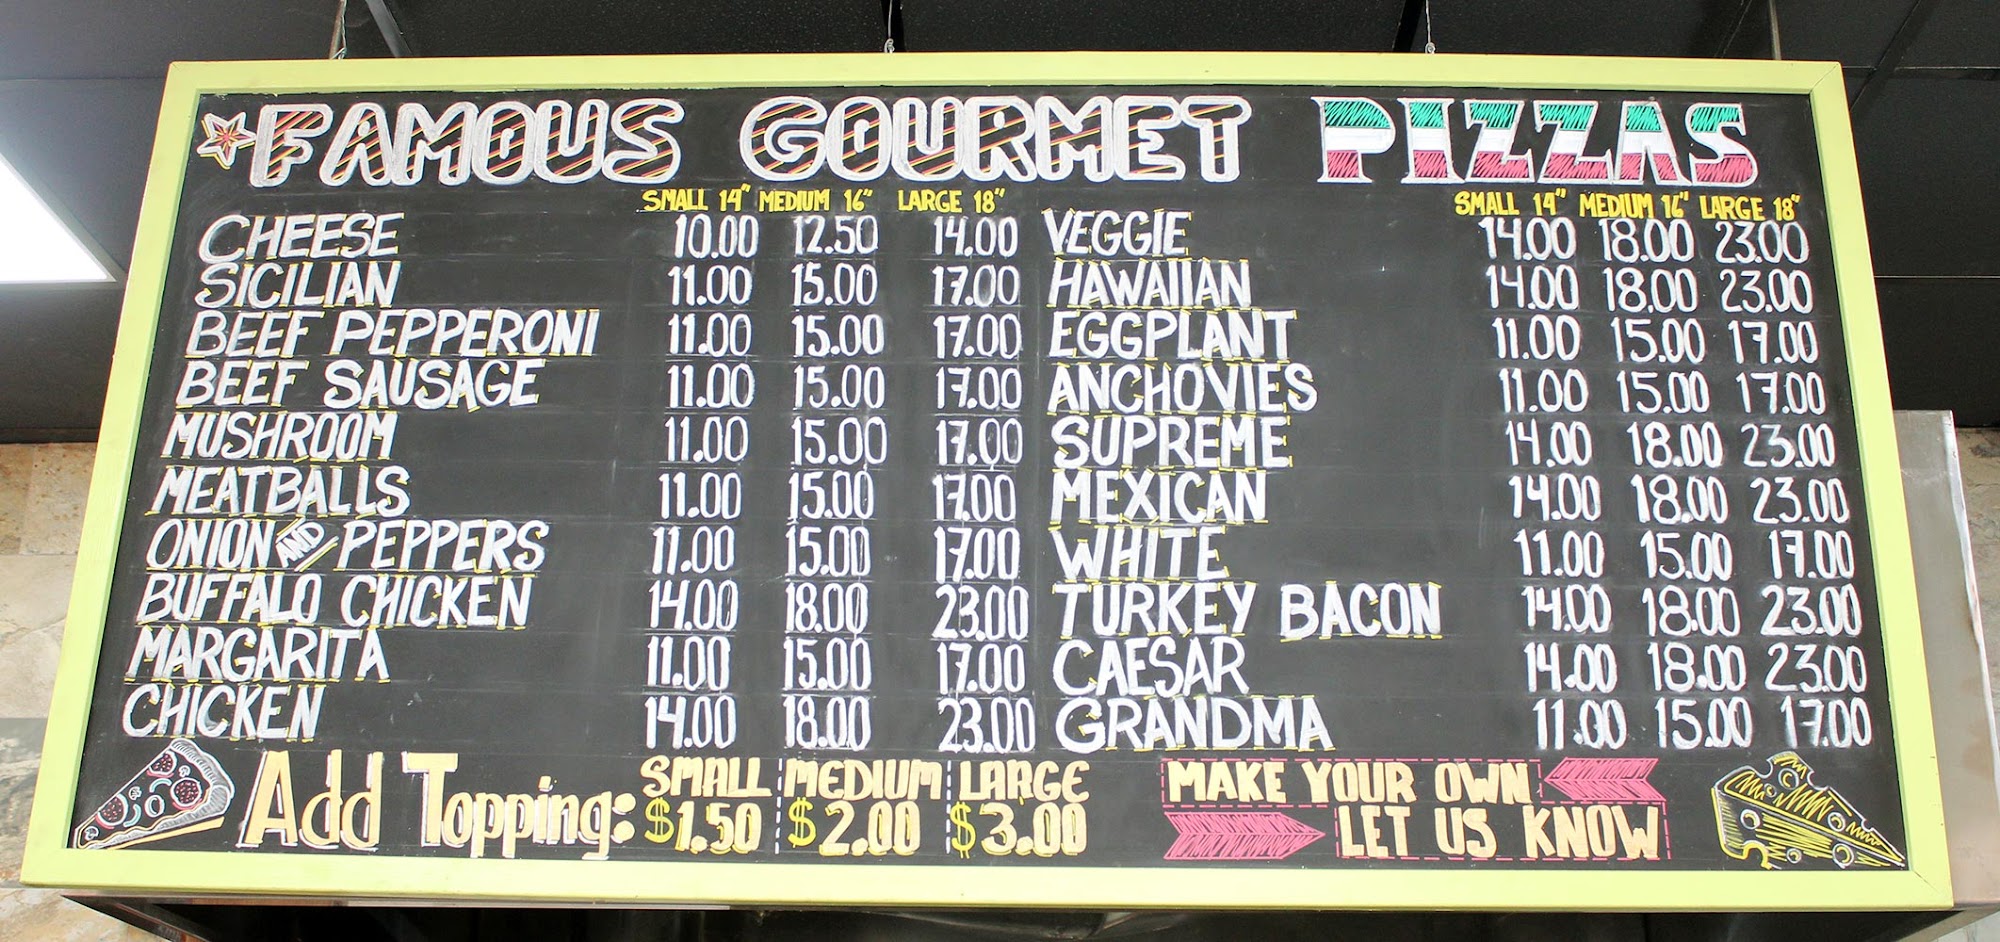 FAMOUS GOURMET PIZZAS
SMALL 14" MEDIUM 16" LARGE 18"
CHEESE 10.00 12.50 14.00
SICILIAN 11.00 15.00 17.00
BEEF PEPPERONI 11.00 15.00 17.00
BEEF SAUSAGE 11.00 15.00 17.00
MUSHROOM 11.00 15.00 17.00
MEATBALLS 11.00 15.00 17.00
ONION AND PEPPERS 11.00 15.00 17.00
BUFFALO CHICKEN 14.00 18.00 23.00
MARGARITA 11.00 15.00 17.00
CHICKEN 14.00 18.00 23.00
SMALL 14" MEDIUM 16" LARGE 18"
VEGGIE 14.00 18.00 23.00
HAWAIIAN 14.00 18.00 23.00
EGGPLANT 11.00 15.00 17.00
ANCHOVIES 11.00 15.00 17.00
SUPREME 14.00 18.00 23.00
MEXICAN 14.00 18.00 23.00
WHITE 11.00 15.00 17.00
TURKEY BACON 14.00 18.00 23.00
CAESAR 14.00 18.00 23.00
GRANDMA 11.00 15.00 17.00
Add Topping:
SMALL MEDIUM LARGE
$1.50 $2.00 $3.00
MAKE YOUR OWN
LET US KNOW